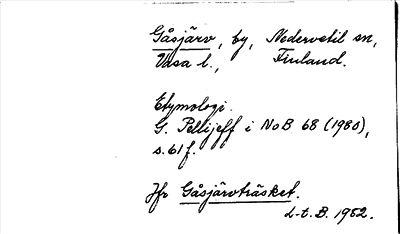 Gåsjärv, by, Nedervetil sn,
Vasa l., Finland.
Etymologi.
G. Pellijeff i NoB 68 (1980),
s. 61 f.
Jfr Gåsjärvträsket.
L-t. B. 1982.